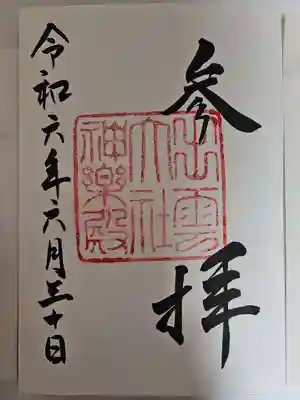 参拝
出雲
大社
神楽殿
令和六年六月三十日